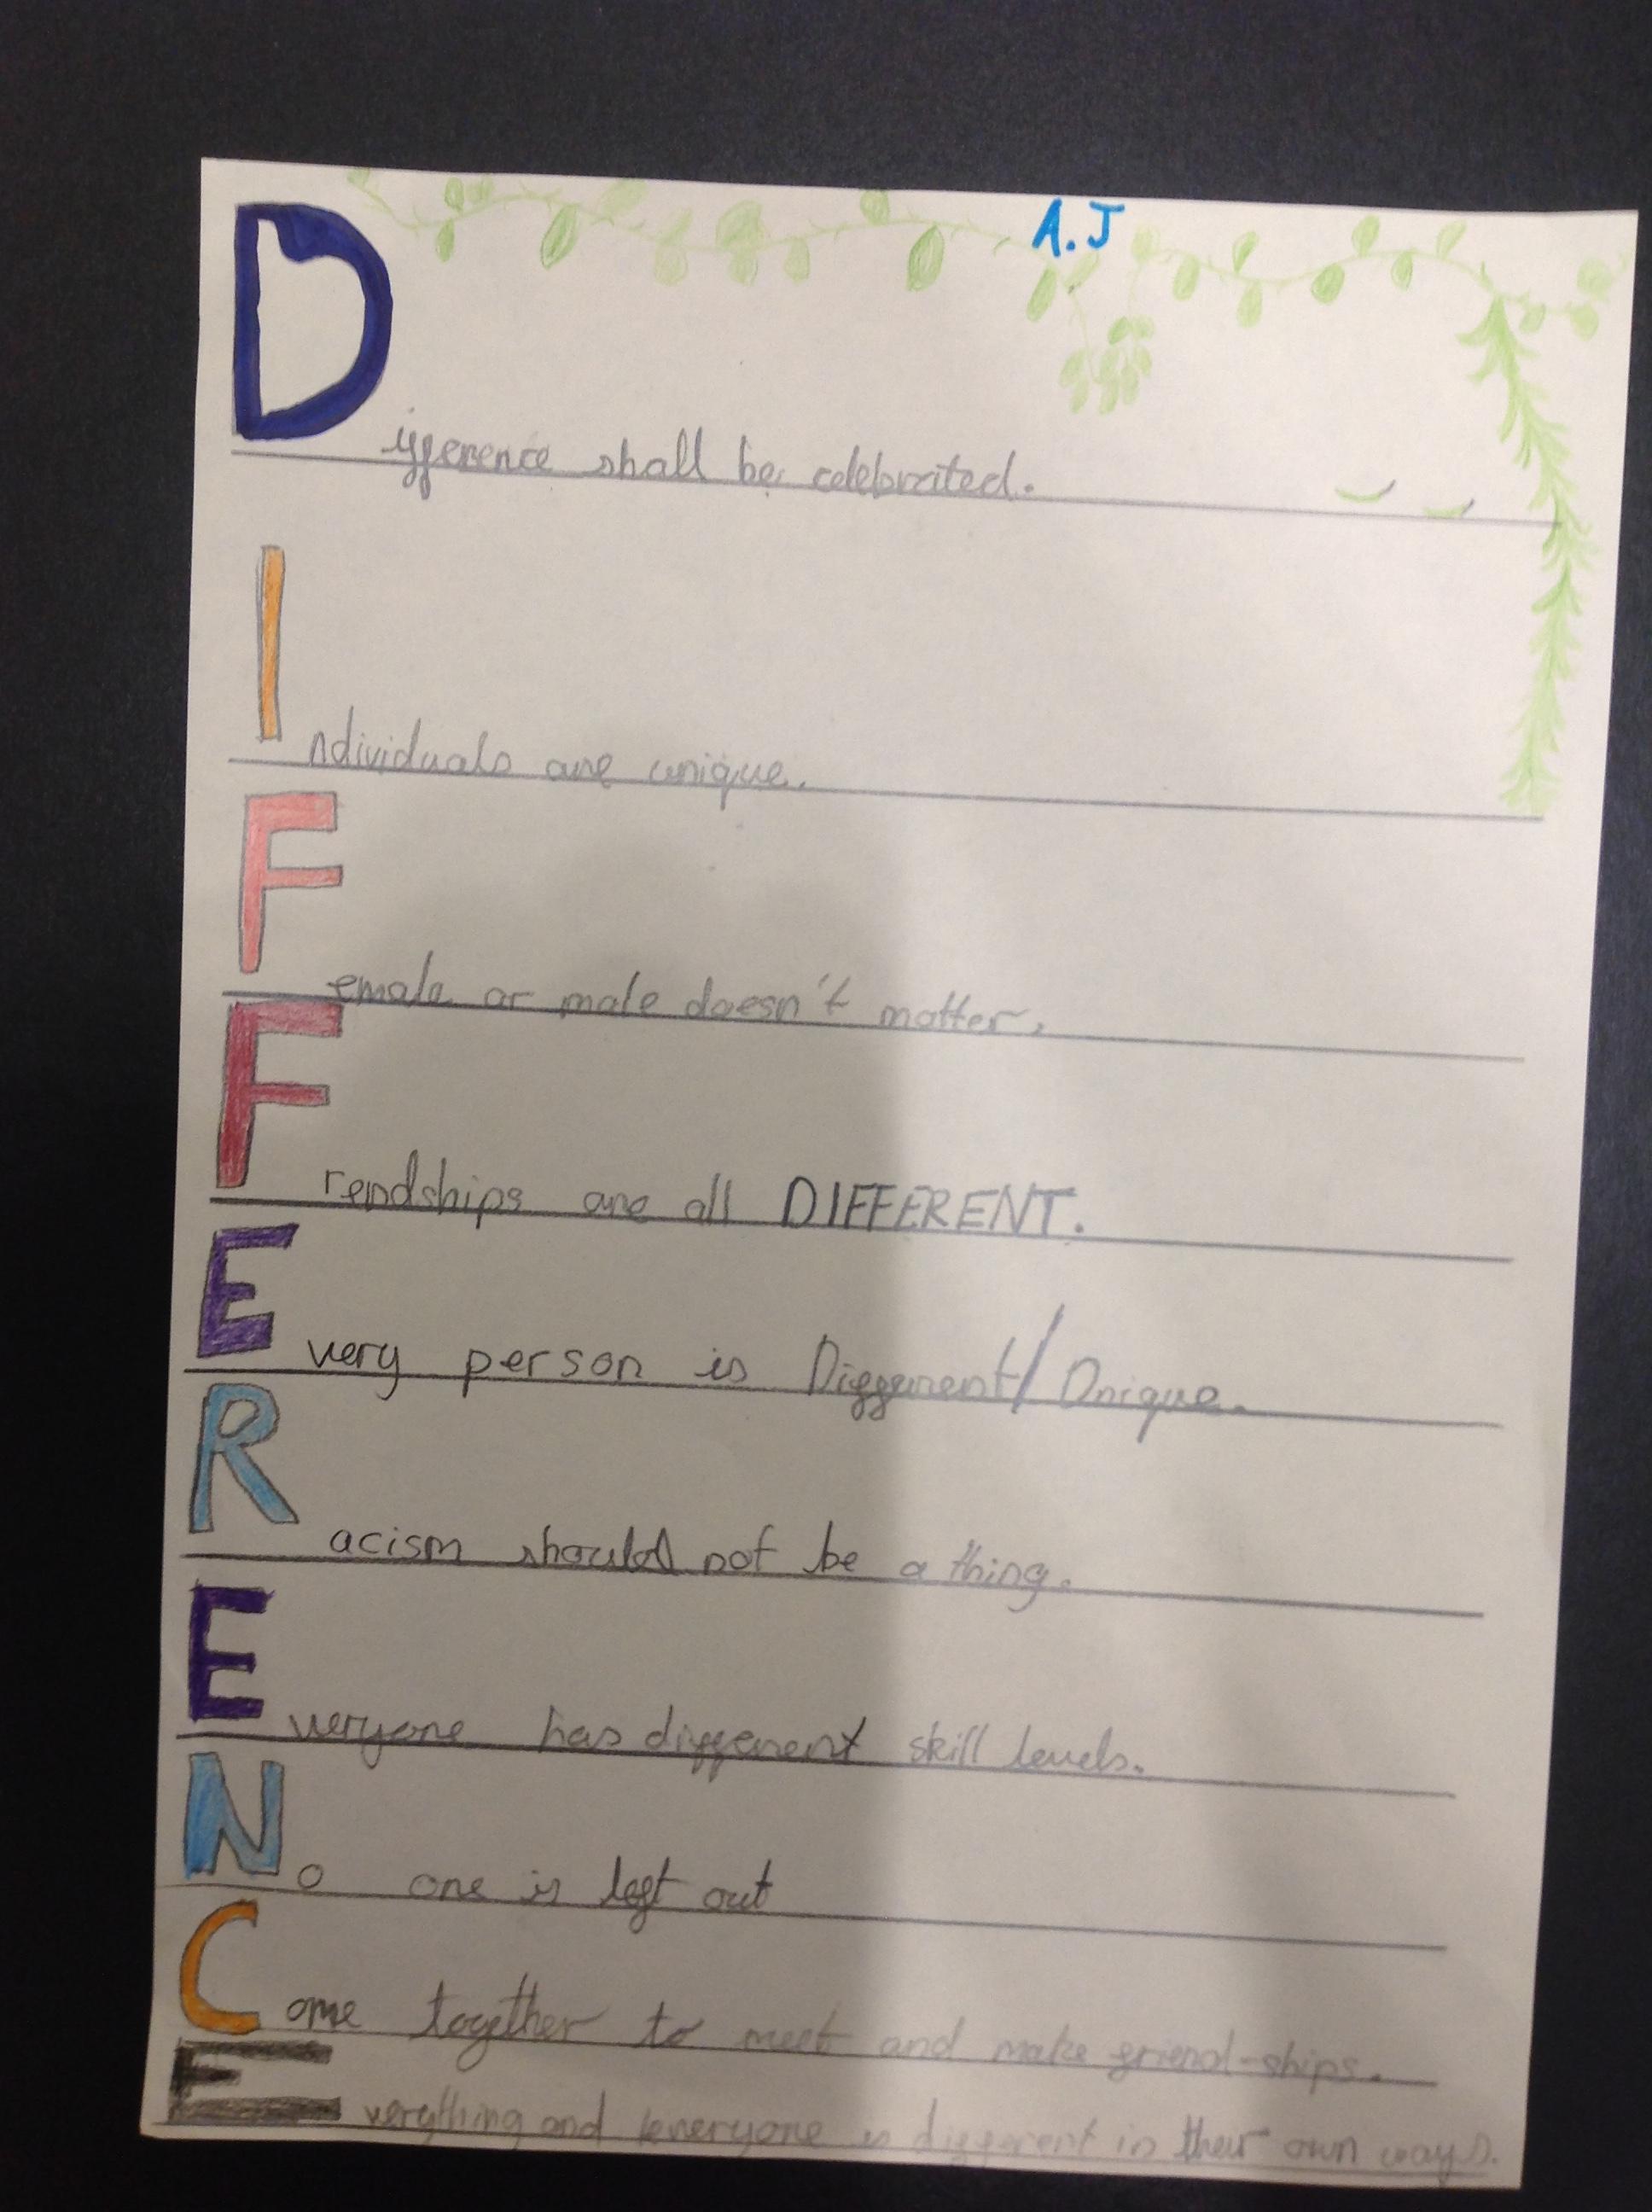 A.J
Difference shall be celebrated.
Individuals are unique.
Female or male doesn't matter.
Freindships are all DIFFERENT.
Every person is Different/Unique.
Racism should not be a thing.
Everyone has different skill levels.
No one is left out
Come together to meet and make friend-ships.
Everything and everyone is different in their own ways.